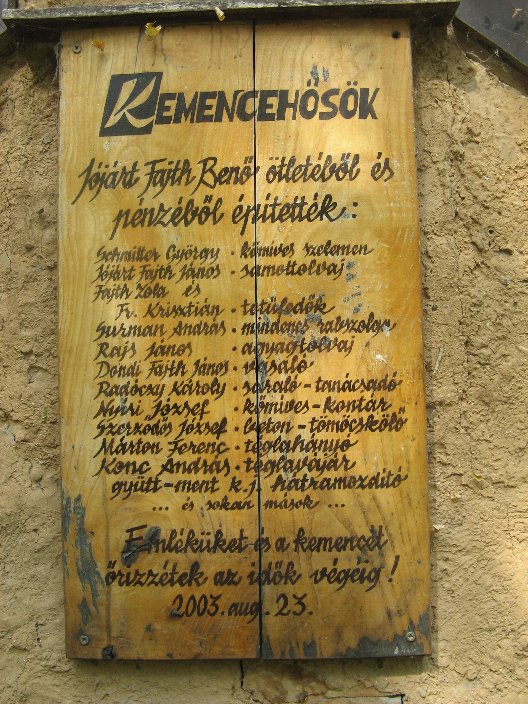 KEMENCEHŐSÖK
Jójárt Fajth Benő ötletéből és
pénzéből építették:
Schmitter György • kőmíves szelemen
Jójárt Fajth János • samottolvaj
Fajth Zola és
Fr. Krisztián • tetűfedők
Surman András • mindenes rabszolga
Rájs János • agyagtolvaj
Dondi Fajth János • vasaló
Radóczy Károly • saraló - tanácsadó
Nyíri József • kőmíves - kontár
Szerződős József • beton - tömöcskölő
Márton Ferenc • téglahányó
Konc András • téglavájár
gyütt-ment k.j. hátramozdító
... és sokan mások ...
Emléküket és a kemencét
őrizzétek az idők végéig!
2003. aug. 23.